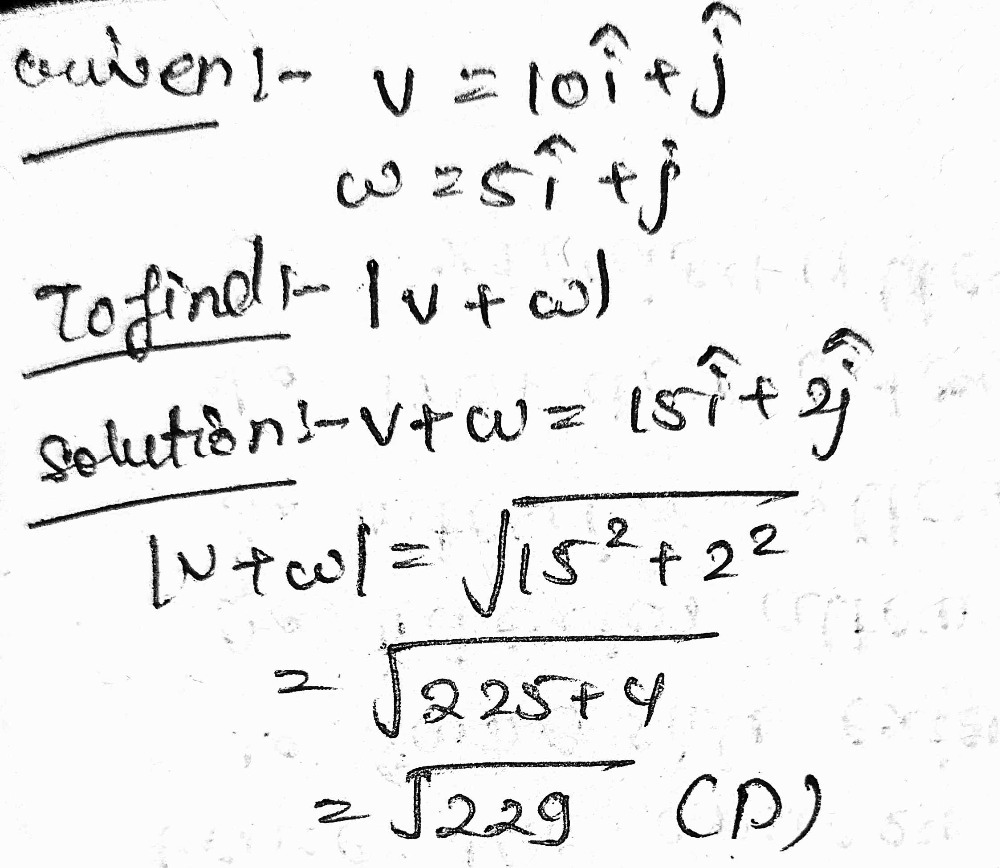 Given :- v = 10î + ĵ
w = 5î + j
To find :- |v + w|
Solution :- v + w = 15î + 2ĵ
|v + w| = √15² + 2²
= √225 + 4
= √229 (D)